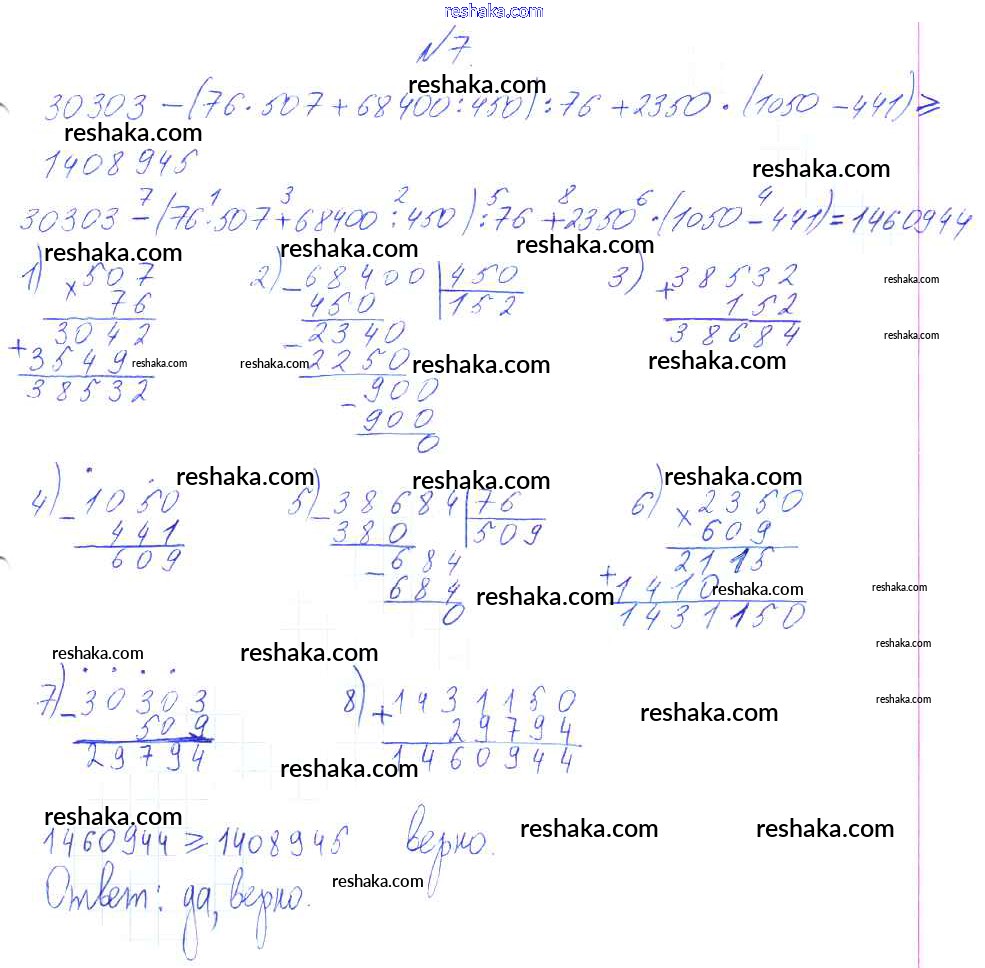 reshaka.com
№7.
reshaka.com
30303 - (76·507 + 68400:450):76 + 2350·(1050 - 441) ≥
reshaka.com
1408945
reshaka.com
7 1 3 2 5 8 6 4
30303 - (76·507 + 68400:450):76 + 2350·(1050 - 441) = 1460944
reshaka.com reshaka.com reshaka.com
1) × 507
76
3042
+ 3549
38532
2) - 68400 | 450
450 | 152
- 2340
2250
- 900
900
0
3) + 38532
152
38684
reshaka.com
reshaka.com
reshaka.com reshaka.com reshaka.com reshaka.com
reshaka.com reshaka.com reshaka.com
4) - 1050
441
609
5) - 38684 | 76
380 | 509
- 684
684
0
6) × 2350
609
2115
+ 1410
1431150
reshaka.com reshaka.com reshaka.com
reshaka.com
reshaka.com reshaka.com
7) - 30303
509
29794
8) + 1431150
29794
1460944
reshaka.com
reshaka.com
reshaka.com
reshaka.com reshaka.com reshaka.com
1460944 ≥ 1408945 верно.
Ответ: да, верно.
reshaka.com